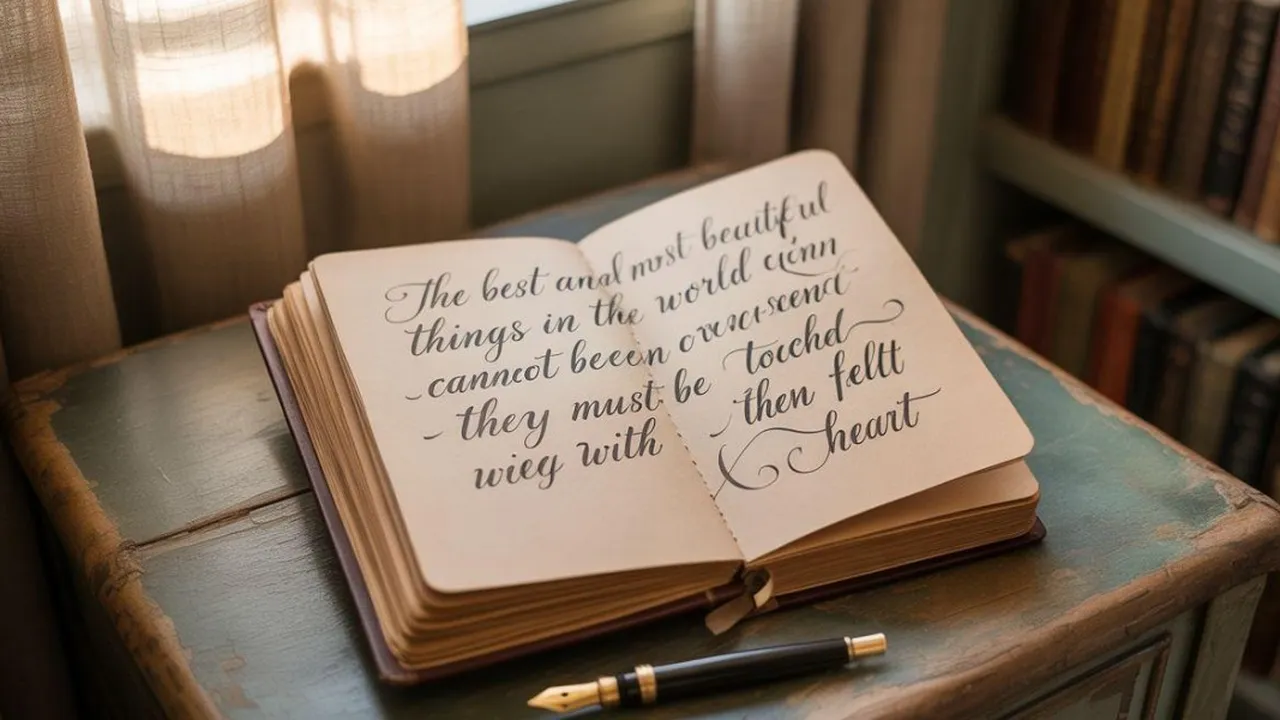 The best and most beautiful
things in the world
canncot beeen
they must be tocchd
wieg with then feltt
heart